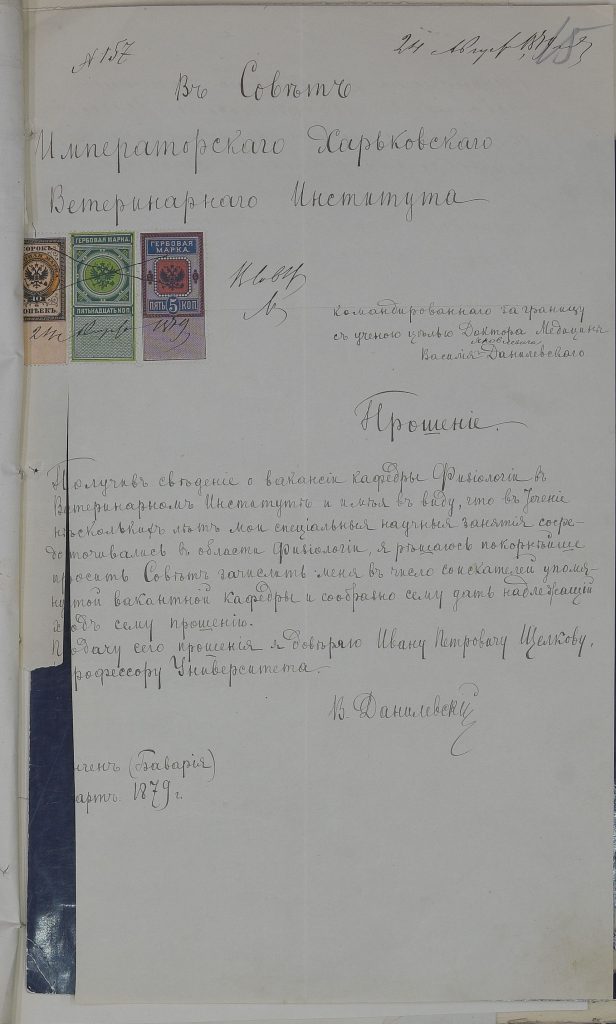 № 157
24
15
Въ Совѣтъ
Императорскаго Харьковскаго
Ветеринарнаго Института
ГЕРБОВАЯ МАРКА
ПЯТЬНАДЦАТЬ КОП
ГЕРБОВАЯ
МАРКА
ПЯТЬ 5 КОП
10
1879
командированнаго заграницу
съ ученою цѣлью Доктора Медицины
Василія Данилевскаго
Прошеніе.
Получивъ свѣденіе о вакансіи кафедры Физіологіи въ
Ветеринарномъ Институтѣ и имѣя въ виду, что въ теченіе
нѣсколькихъ лѣтъ мои спеціальныя научныя занятія сосре-
доточивались въ области Физіологіи, я рѣшаюсь покорнѣйше
просить Совѣтъ зачислить меня въ число соискателей упомя-
нутой вакантной кафедры и сообразно сему дать надлежащій
ходъ сему прошенію.
Подачу сего прошенія я довѣряю Ивану Петровичу Щелкову,
профессору Университета.
В. Данилевскій
(Баварія)
артъ 1879 г.